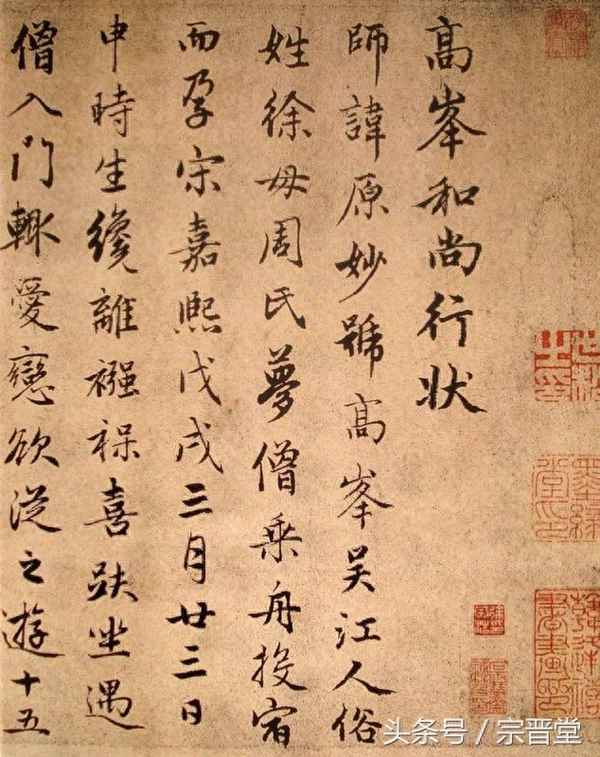 高峯和尚行状
師諱原妙號高峯吴江人俗
姓徐母周氏夢僧乗舟投宿
而孕宋嘉熙戊戌三月廿三日
申時生纔離襁褓喜趺坐遇
僧入門輙愛戀欲從之遊十五
头条号／宗晋堂